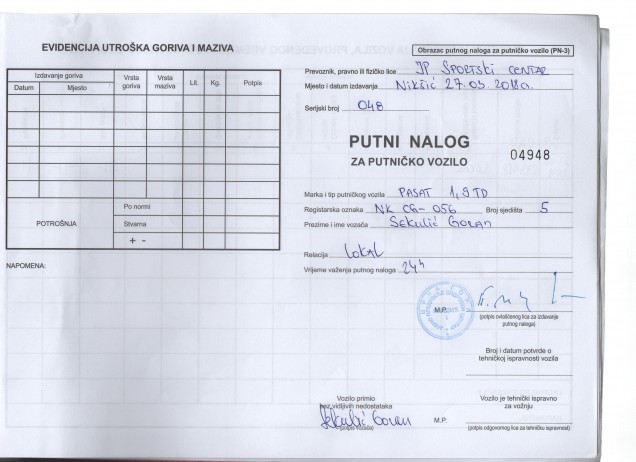 EVIDENCIJA UTROŠKA GORIVA I MAZIVA
Izdavanje goriva
Datum
Mjesto
Vrsta goriva
Vrsta maziva
Lit.
Kg.
Potpis
POTROŠNJA
Po normi
Stvarna
+ -
NAPOMENA:
Obrazac putnog naloga za putničko vozilo (PN-3)
Prevoznik, pravno ili fizičko lice JP SPORTSKI CENTAR
Mjesto i datum izdavanja Nikšić 27.03.2018.
Serijski broj 048
PUTNI NALOG
ZA PUTNIČKO VOZILO
04948
Marka i tip putničkog vozila PASAT 1,9 TD
Registarska oznaka NK CG-056 Broj sjedišta 5
Prezime i ime vozača SEKULIĆ GORAN
Relacija LOKAL
Vrijeme važenja putnog naloga 24h
M.P.
(potpis ovlašćenog lica za izdavanje
putnog naloga)
Broj i datum potvrde o
tehničkoj ispravnosti vozila
Vozilo primio
bez vidljivih nedostataka
Sekulić Goran
(potpis vozača)
M.P.
Vozilo je tehnički ispravno
za vožnju
(potpis odgovornog lica za tehničku ispravnost)